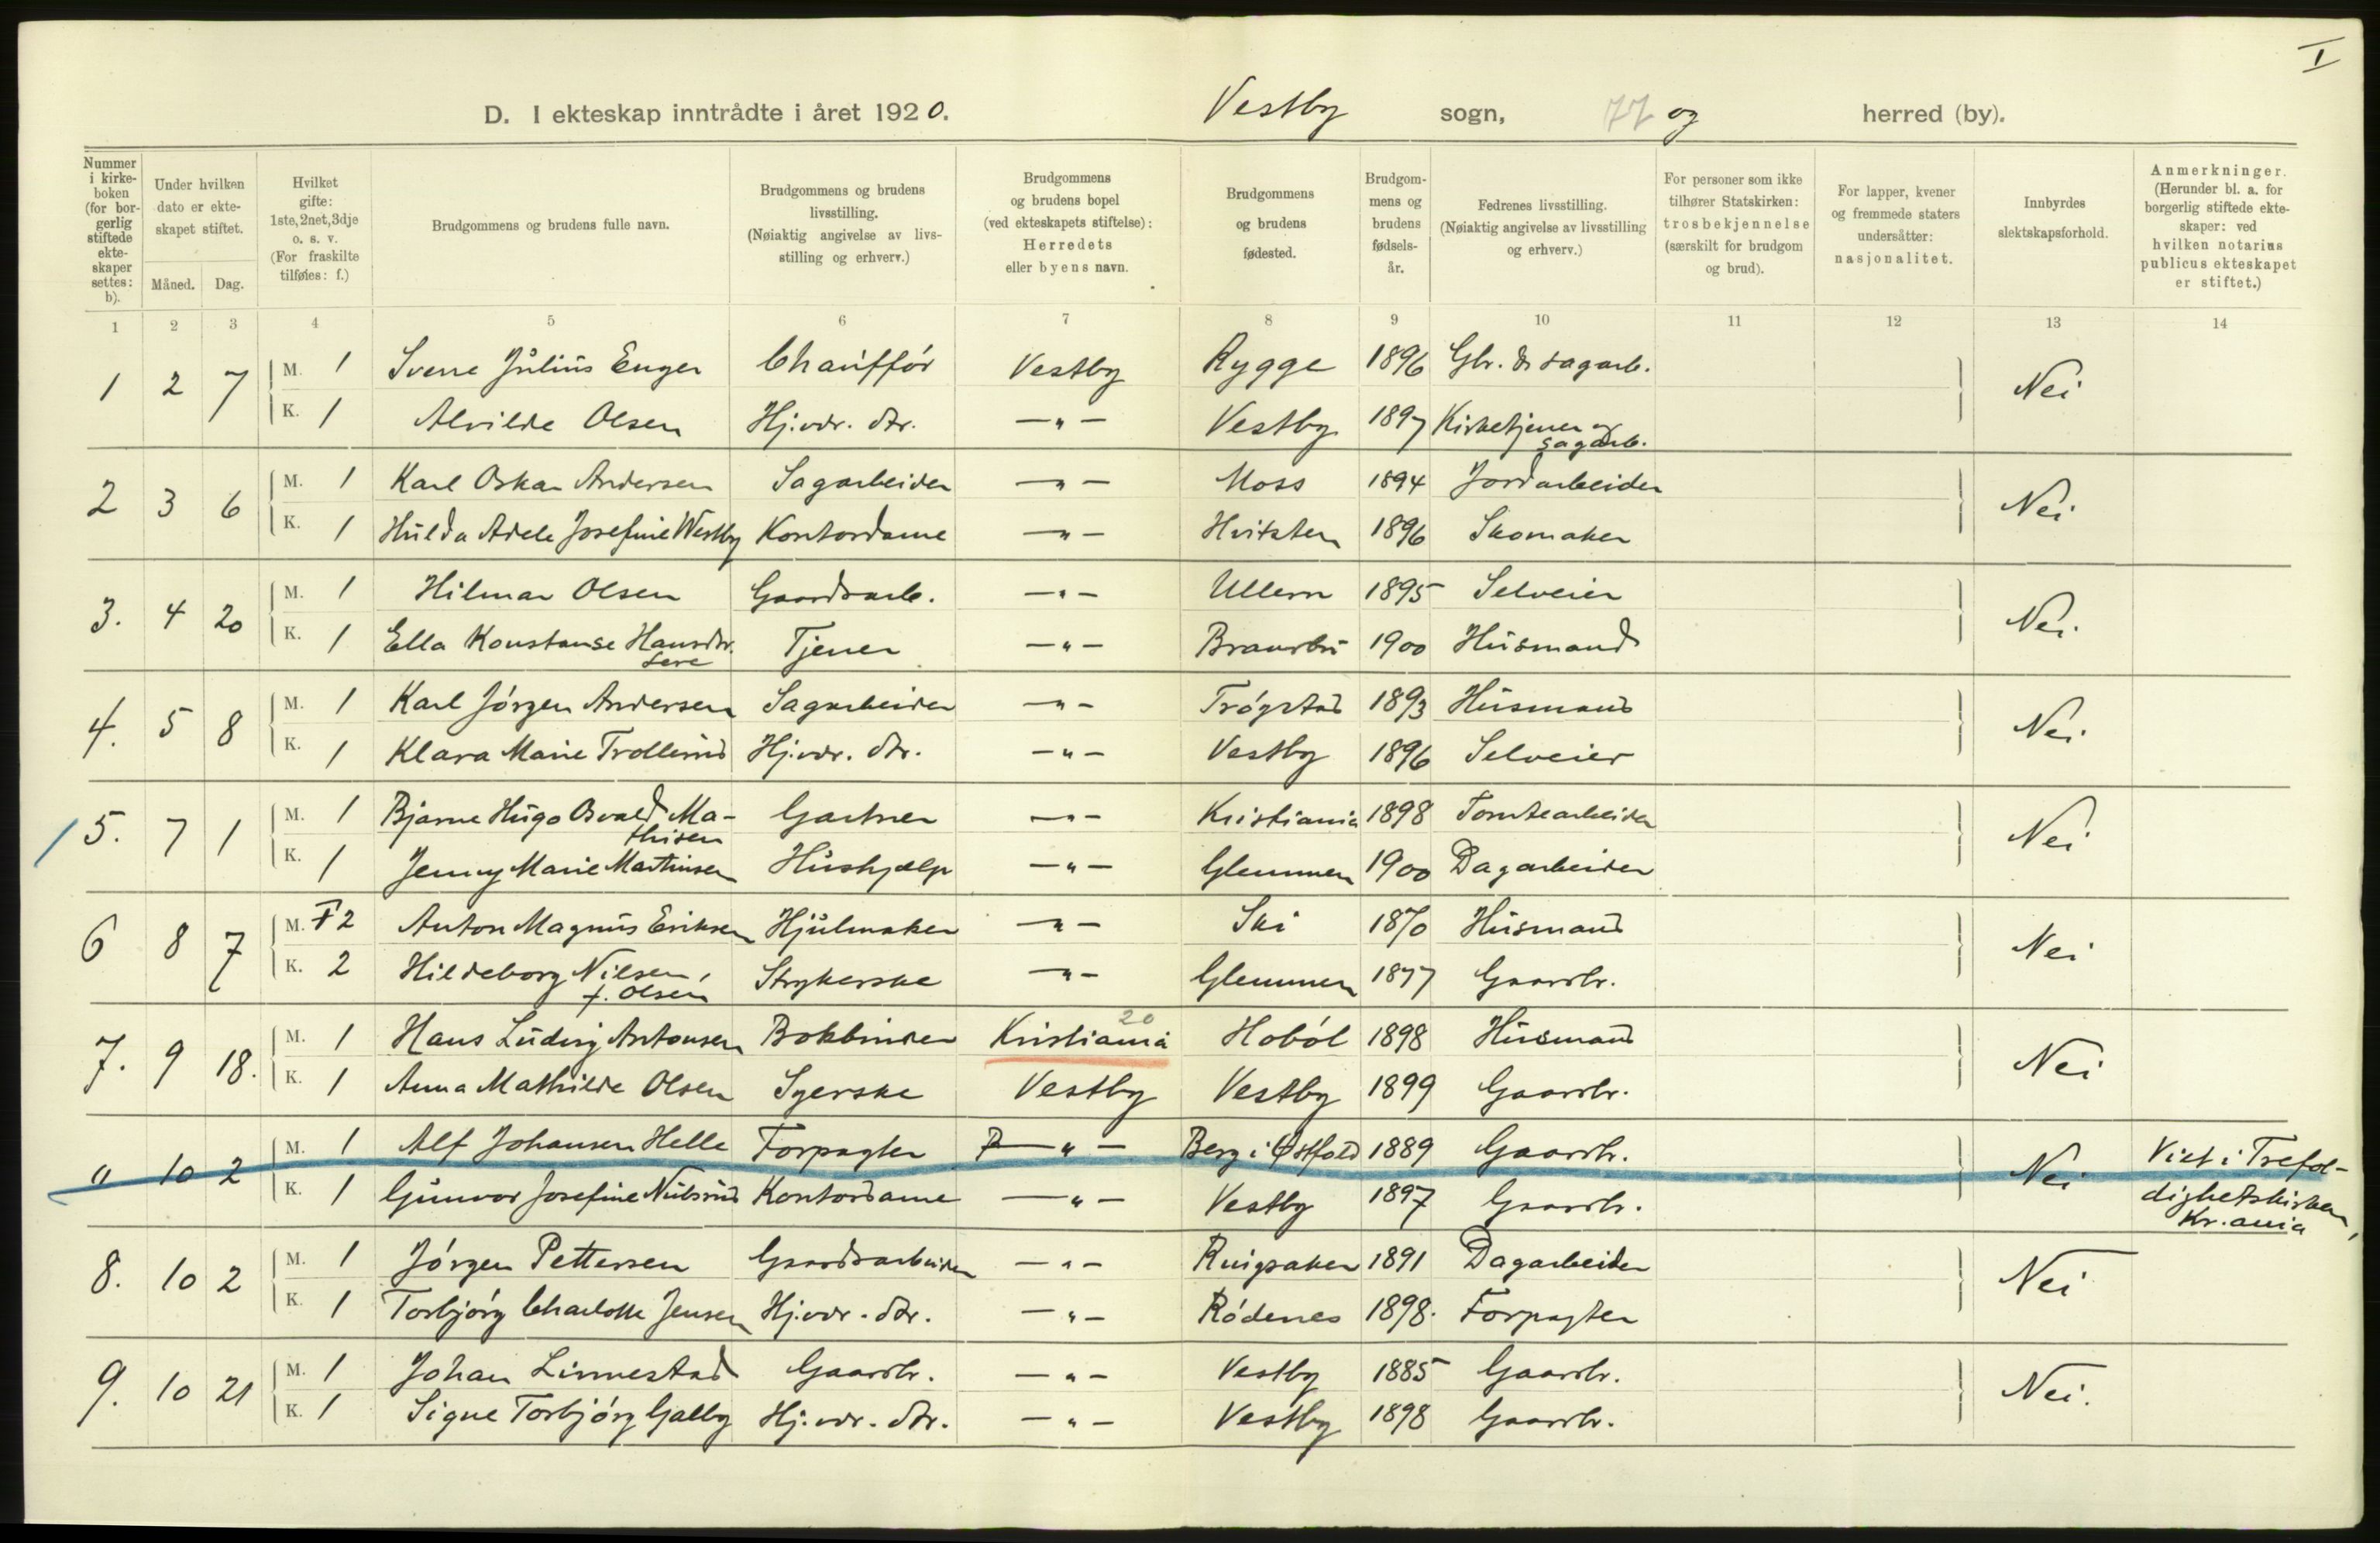 I
D. I ekteskap inntrådte i året 1920. Vestby sogn, 77 og herred (by).
Nummer i kirke-boken (for bor-gerlig stiftede ekte-skaper settes: b).
Under hvilken dato er ekte-skapet stiftet.
Måned. Dag.
Hvilket gifte: 1ste, 2net, 3dje o. s. v. (For fraskilte tilføies: f.)
Brudgommens og brudens fulle navn.
Brudgommens og brudens livsstilling. (Nøiaktig angivelse av livs-stilling og erhverv.)
Brudgommens og brudens bopel (ved ekteskapets stiftelse): Herredets eller byens navn.
Brudgommens og brudens fødested.
Brudgom-mens og brudens fødsels-år.
Fedrenes livsstilling. (Nøiaktig angivelse av livsstilling og erhverv.)
For personer som ikke tilhører Statskirken: trosbekjennelse (særskilt for brudgom og brud).
For lapper, kvener og fremmede staters undersåtter: nasjonalitet.
Innbyrdes slektskapsforhold.
Anmerkninger. (Herunder bl. a. for borgerlig stiftede ekte-skaper: ved hvilken notarius publicus ekteskapet er stiftet.)
1 2 3 4 5 6 7 8 9 10 11 12 13 14
1 2 7 M. 1 Sverre Julius Enger Chauffór Vestby Rygge 1896 Gbr. & sagarb. Nei
K. 1 Alvilde Olsen Hj.vær. dtr. —"— Vestby 1897 Kirketjener og sagarb.
2 3 6 M. 1 Karl Oskar Andersen Sagarbeider —"— Moss 1894 Jordarbeider Nei
K. 1 Hulda Adele Josefine Westby Kontordame —"— Hvitsten 1896 Skomaker
3. 4 20 M. 1 Hilmar Olsen Gaardsarb. —"— Ullern 1895 Selveier Nei.
K. 1 Ella Konstanse Hansdtr. Tjener —"— 1900 Husmand
4. 5 8 M. 1 Karl Jórgen Andersen Sagarbeider —"— Trógstad 1893 Husmand Nei.
K. 1 Klara Marie Trollerud Hj.vær. dtr. —"— Vestby 1896 Selveier
5. 7 1 M. 1 Bjarne Hugo Osvald Ma-thisen Gartner —"— Kristiania 1898 Tomtearbeider Nei
K. 1 Jenny Marie Martinsen Hushjælp —"— Glemmen 1900 Dagarbeider
6 8 7 M. F 2 Anton Magnus Eriksen Hjulmaker —"— Ski 1870 Husmand Nei
K. 2 Hildeborg Nilsen, f. Olsen Strykerske —"— Glemmen 1877 Gaardbr.
7. 9 18. M. 1 Hans Ludvig Antonsen Bokbinder Kristiania 20 Hoból 1898 Husmand Nei
K. 1 Anna Mathilde Olsen Syerske Vestby Vestby 1899 Gaardbr.
" 10 2 M. 1 Alf Johansen Helle Forpagter —"— Berg i Østfold 1889 Gaardbr. Nei Viet i Trefol-dighetskirken, Kr.ania
K. 1 Gunvor Josefine Kontordame —"— Vestby 1897 Gaardbr.
8. 10 2 M. 1 Jórgen Pettersen Gaardsarbeider —"— Ringsaker 1891 Dagarbeider Nei
K. 1 Torbjórg Charlotte Jensen Hj.vær. dtr. —"— Ródenes 1898. Forpagter
9. 10 21 M. 1 Johan Linnestad Gaardbr. —"— Vestby 1885 Gaardbr. Nei.
K. 1 Signe Torbjórg Galby Hj.vær. dtr. —"— Vestby 1898 Gaardbr.